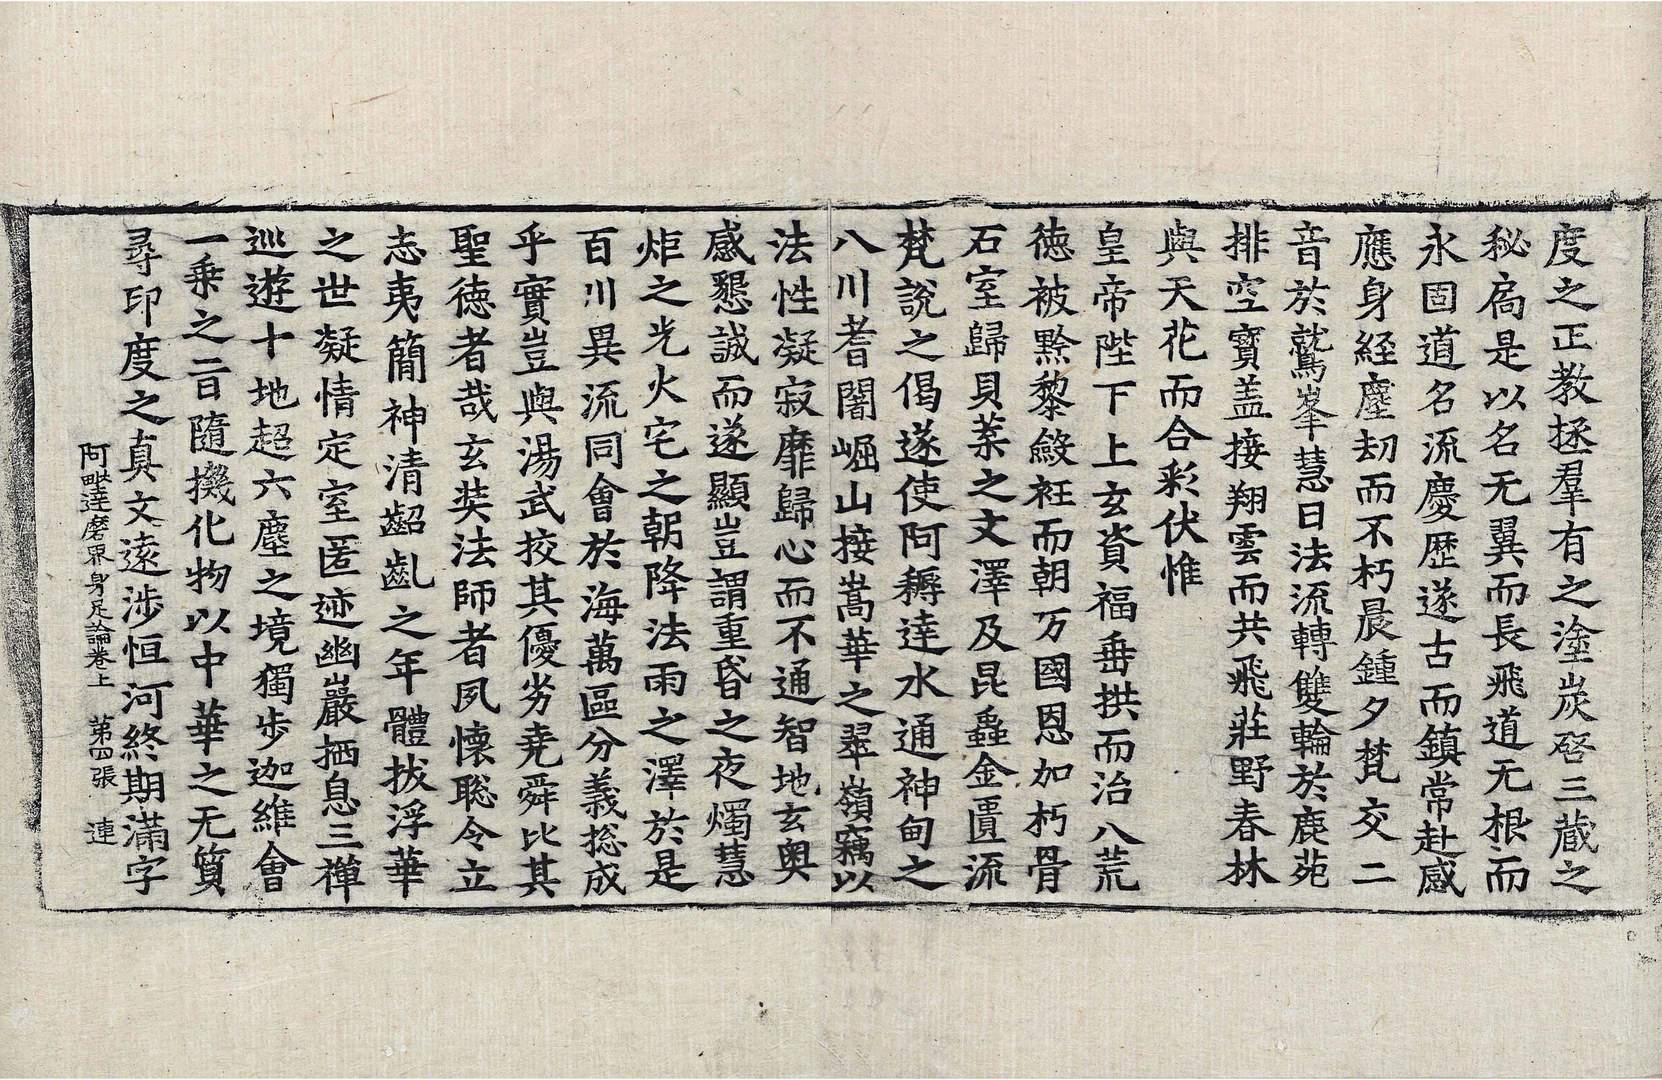 度之正教拯羣有之塗炭啓三藏之
秘扃是以名无翼而長飛道无根而
永固道名流慶歷遂古而鎮常赴感
應身經塵劫而不朽晨鍾夕梵交二
音於鷲峯慧日法流轉雙輪於鹿苑
排空寳盖接翔雲而共飛莊野春林
與天花而合彩伏惟
皇帝陛下上玄資福垂拱而治八荒
德被黔黎斂衽而朝万國恩加朽骨
石室歸貝葉之文澤及昆蟲金匱流
梵說之偈遂使阿耨達水通神甸之
八川耆闍崛山接嵩華之翠嶺竊以
法性凝寂靡歸心而不通智地玄奥
感懇誠而遂顯豈謂重昏之夜燭慧
炬之光火宅之朝降法雨之澤於是
百川異流同會於海萬區分義捴成
乎實豈與湯武挍其優劣堯舜比其
聖德者哉玄奘法師者夙懷聡令立
志夷簡神清齠齓之年體拔浮華
之世凝情定室匿迹幽巖栖息三禪
巡遊十地超六塵之境獨步迦維會
一乗之旨隨機化物以中華之无質
尋印度之真文遠涉恒河終期滿字
阿毗達磨界身足論卷上 第四張 連